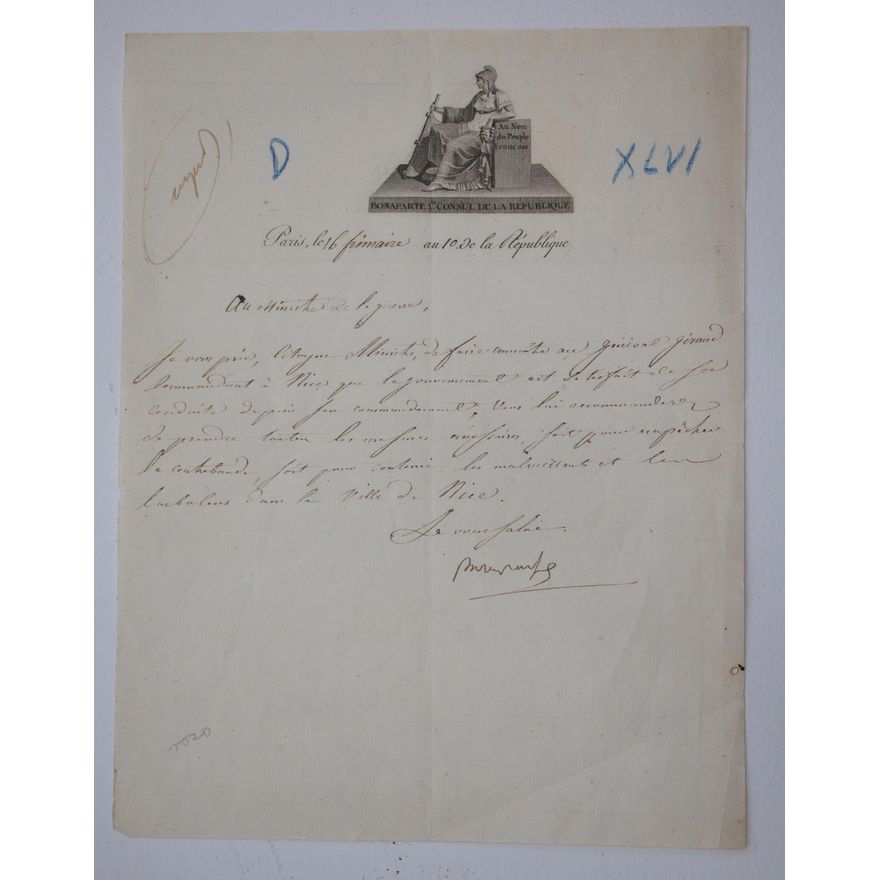 D
Au Nom
du Peuple
Français
XLVI
BONAPARTE 1er CONSUL DE LA RÉPUBLIQUE
Paris, le 16 frimaire an 10. de la République
Au Ministre de la guerre,
Je vous prie, Citoyen Ministre, de faire connaître au général Giraud
Commandant à Nice que le gouvernement est satisfait de sa
conduite depuis son commandement, Vous lui recommanderez
de prendre toutes les mesures nécessaires, soit pour empêcher
la contrebande, soit pour contenir les malveillants et les
turbulens dans la Ville de Nice.
Je vous salue.
Bonaparte